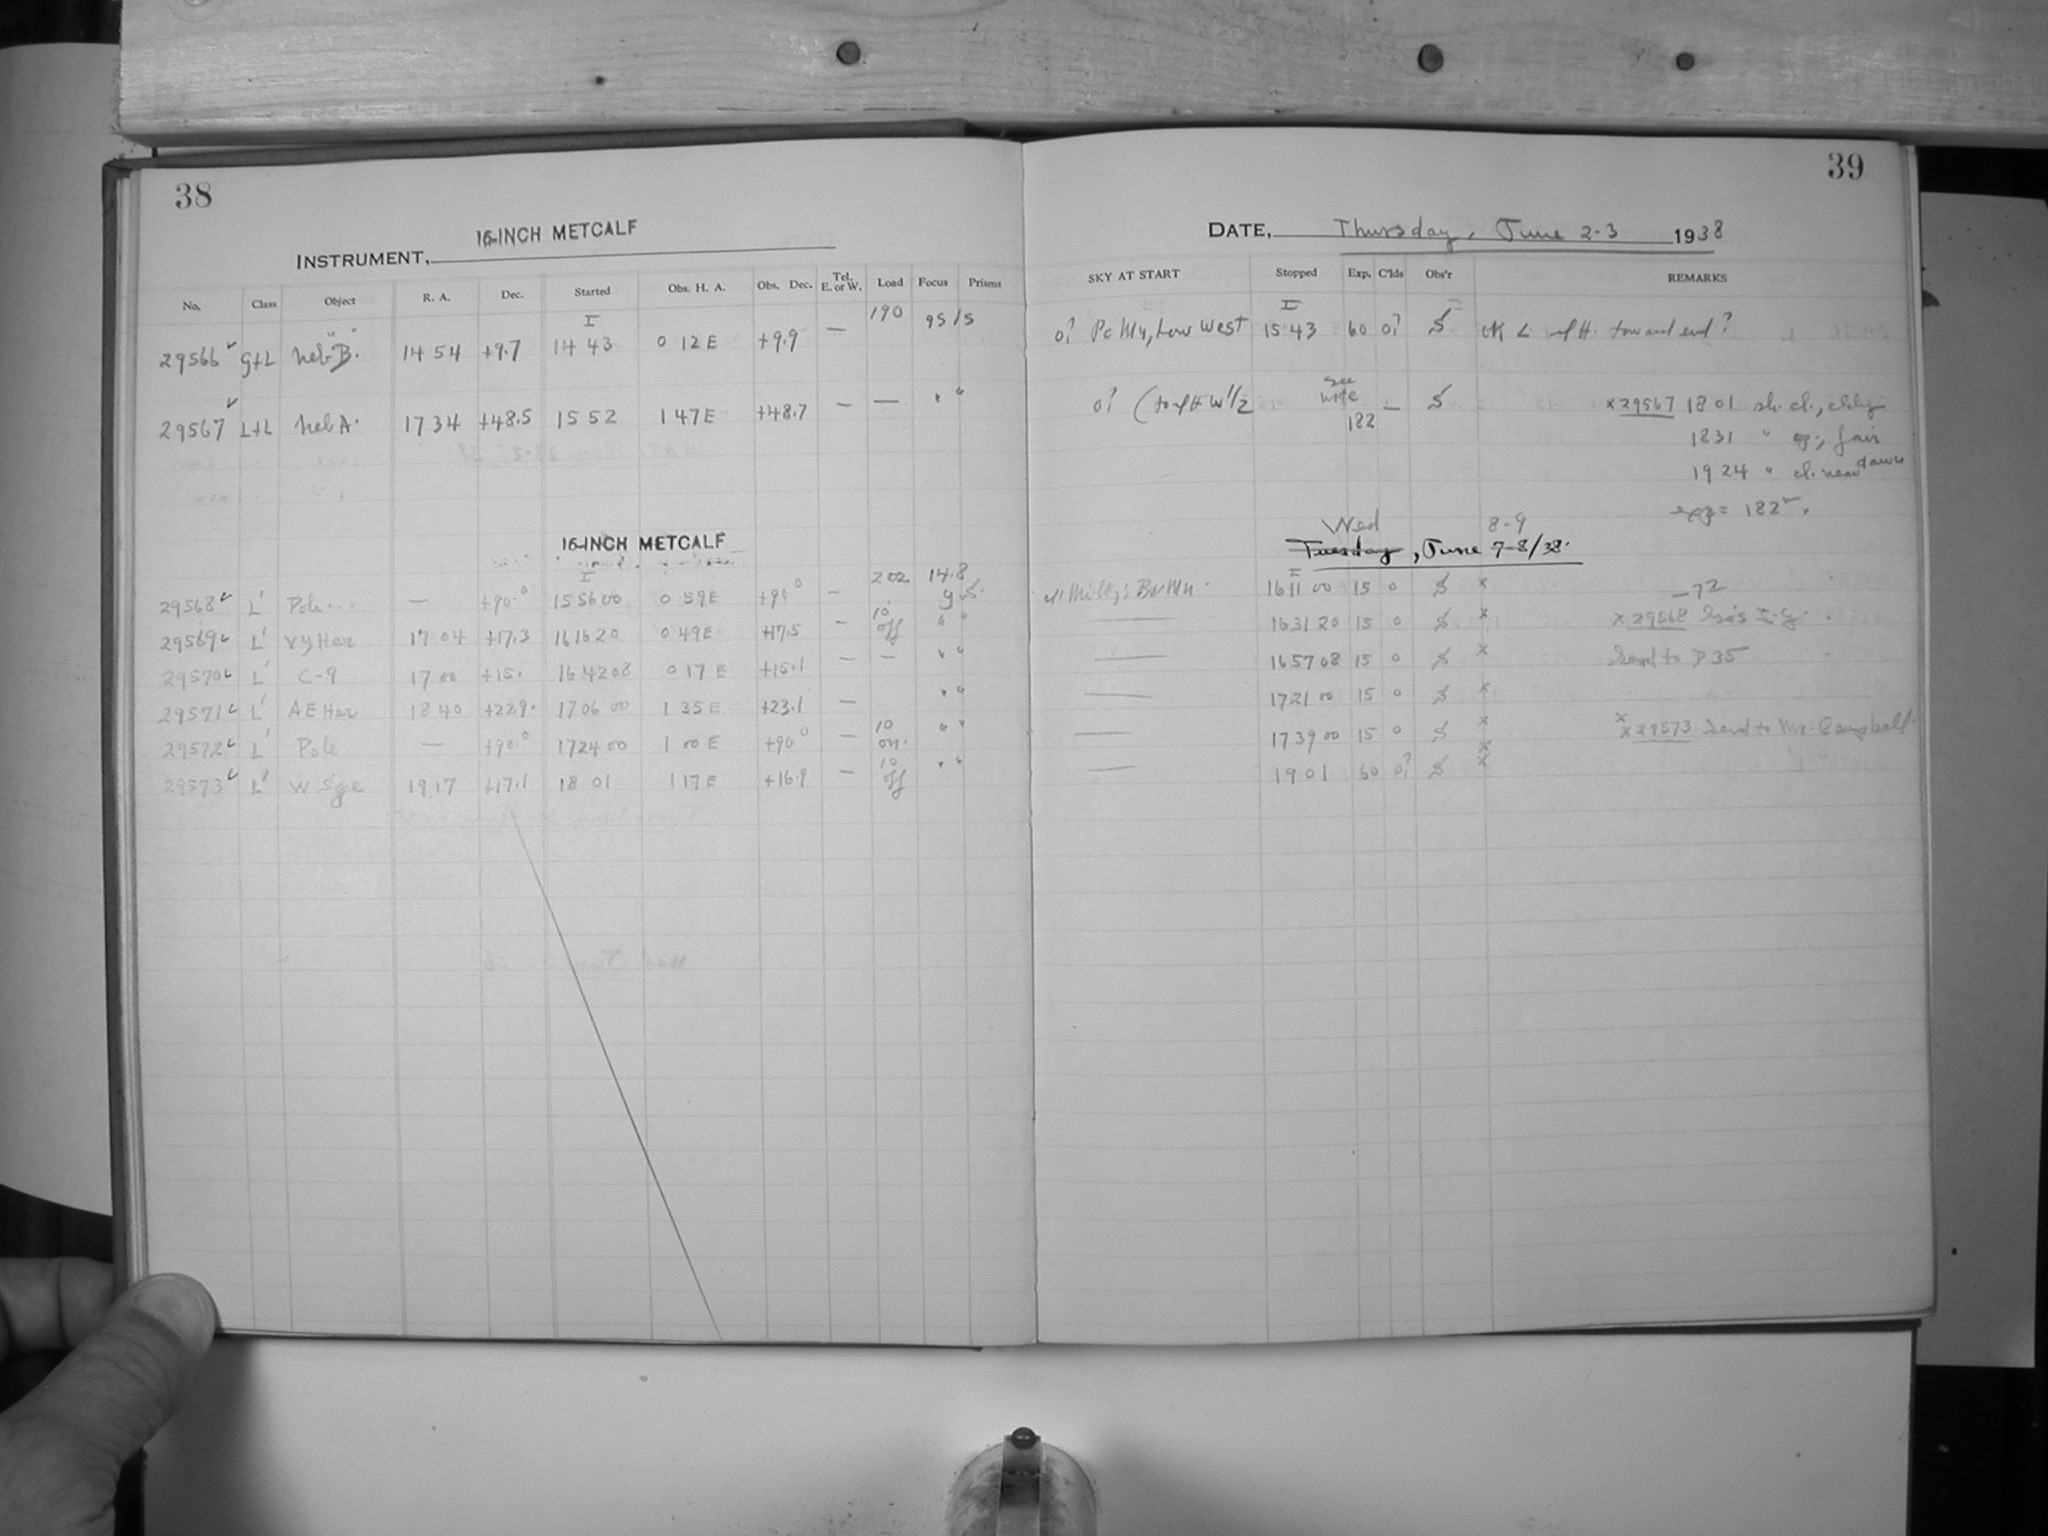 38
INSTRUMENT, 16-INCH METCALF
No. Class Object R. A. Dec. Started Obs. H. A. Obs. Dec. Tel. E. or W. Load Focus Prisms
I 190
29566 G+L Neb B. 14 54 +9.7 14 43 0 12 E +9.9 — 9S15
29567 L+L Neb A. 17 34 +48.5 15 52 1 47 E +48.7 — — " "
16-INCH METCALF
I 202 14.8
29568 L' Pole — +90.0 15 56 00 0 59 E +90 0 — 9 S.
29569 L' VY Her 17 04 +17.3 16 16 20 0 49 E +17.5 — 10 off " "
29570 L' C-9 17 00 +15. 16 42 08 0 17 E +15.1 — — " "
29571 L' AE Her 18 40 +22.9 17 06 00 1 35 E +23.1 — " "
29572 L' Pole — +90.0 17 24 00 1 00 E +90 0 — 10 on. " "
29573 L' W Sge 19 17 +17.1 18 01 1 17 E +16.9 — 10 off " "
39
DATE, Thursday, June 2-3 1938
SKY AT START Stopped Exp. C'lds Obs'r REMARKS
I
0? Pc My, Low West 15 43 60 0? S OK L toward end?
0? ( W 1/2 see note 182 — S x 29567 18 01 sh. cl.,
18 31 " op; fair
19 24 " cl. near dawn
exp = 182 m.
Wed 8-9
Tuesday, June 7-8/38.
I
16 11 00 15 0 S x —72
— 16 31 20 15 0 S x x 29568
— 16 57 08 15 0 S x Send to D 35
— 17 21 00 15 0 S x
— 17 39 00 15 0 S x x 29573 Send to Mr. Campbell.
— 19 01 60 0? S x